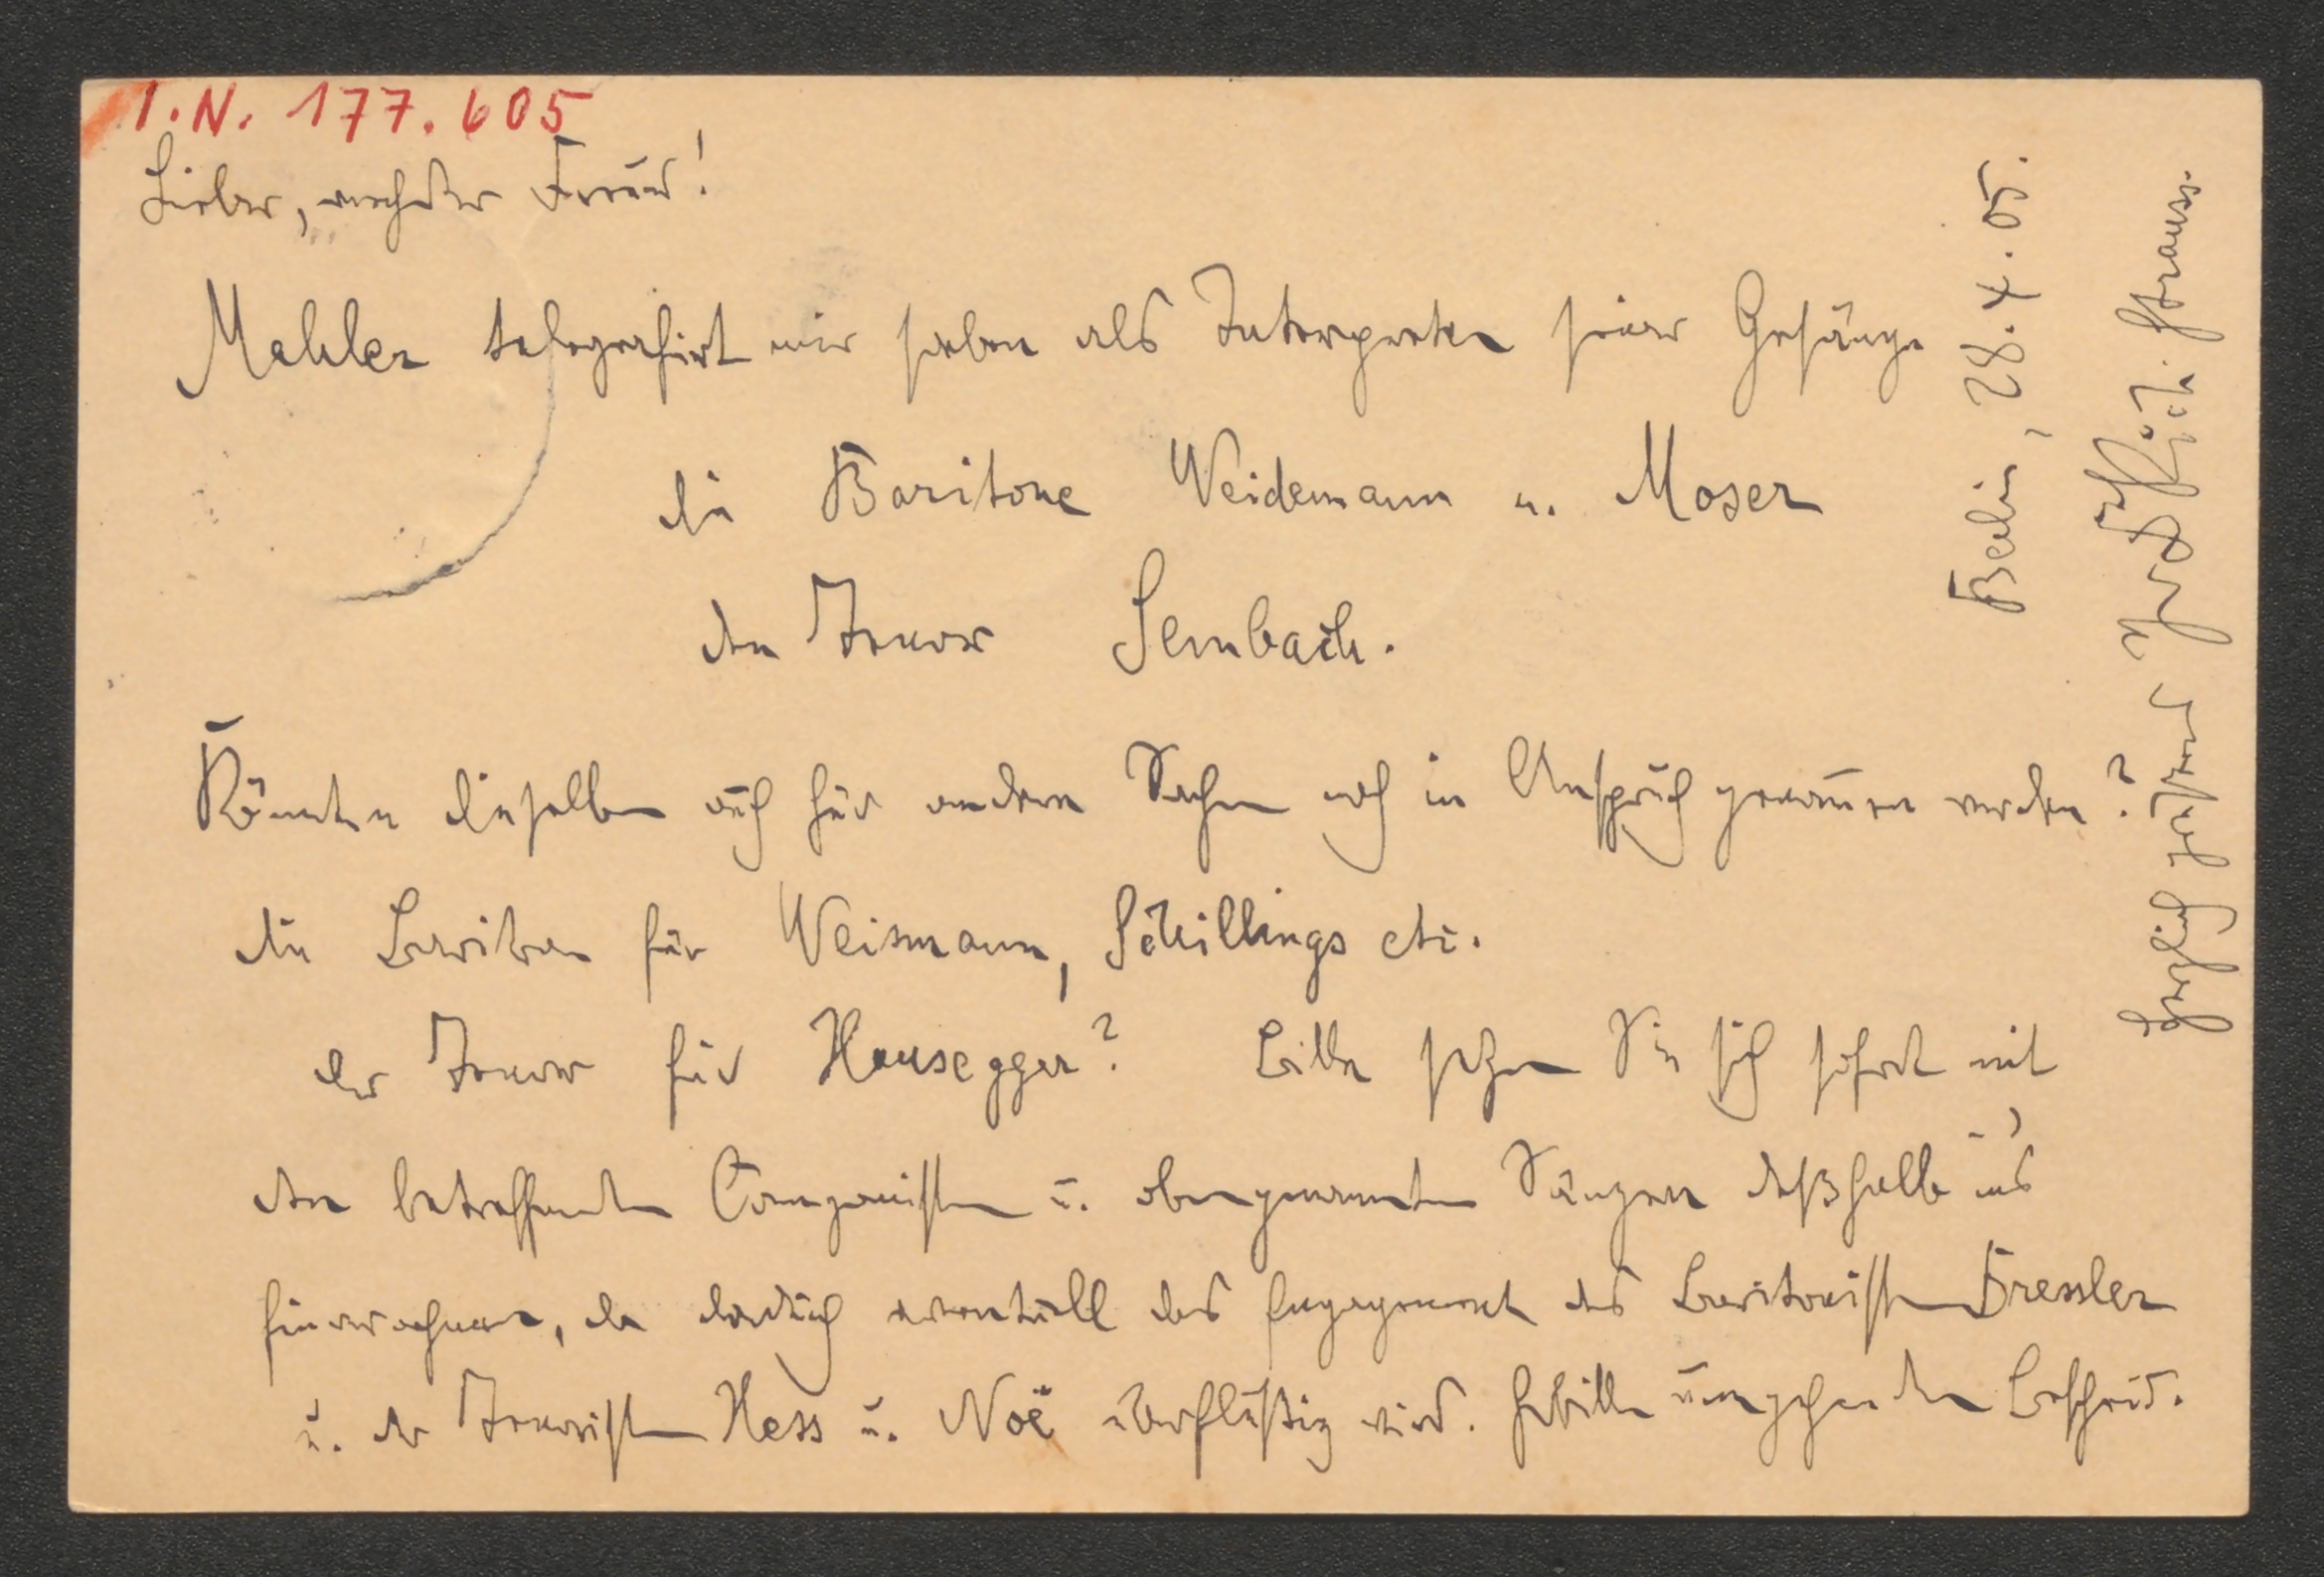 I.N. 177.605
Lieber, verehrter Freund!
Mahler telegrafirt mir soeben als Interpreten seiner Gesänge
die Baritone Weidemann u. Moser
den Tenor Sembach.
Könnten dieselben auch für andere Sachen noch in Anspruch genom̄en werden?
die Bariton für Weismann, Schillings etc.
der Tenor für Hausegger? Bitte setzen Sie sich sofort mit
den betreffenden Componisten u. obengenannten Sängern deßhalb ins
Einvernehmen, da dadurch eventuell das Engagement des Baritonisten Bressler
u. der Tenoristen Hess u. Noë überflüssig wird. Erbitte umgehenden Bescheid.
Berlin, 28.4.05.
Herzlich grüßend Ihr Rich. Strauss.